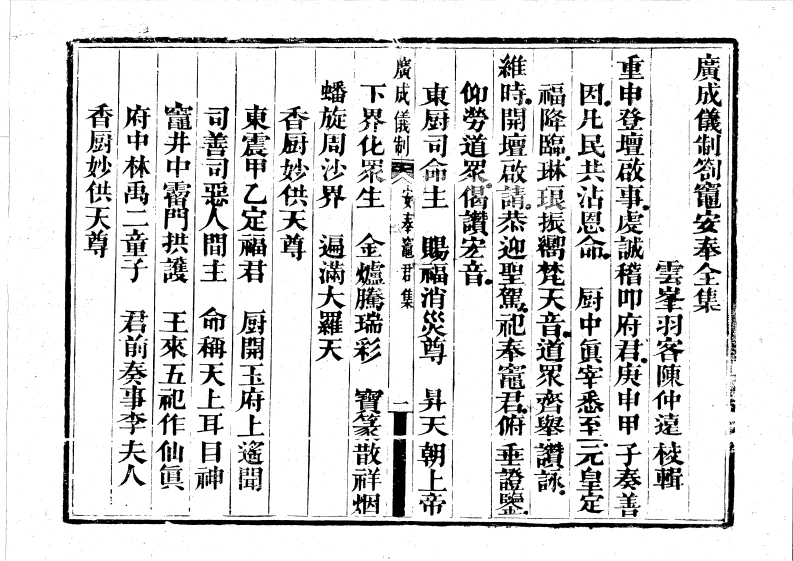 廣成儀制劄竈安奉全集
雲峯羽客陳仲遠 校輯
重申登壇啟事虔誠稽叩府君庚申甲子奏善
因凡民共沾恩命 厨中眞宰悉至元皇定
福降臨琳琅振嚮梵天音道眾齊舉讚詠
維時開壇啟請恭迎聖駕祀奉竈君俯垂證鑒
仰勞道眾偈讚宏音
東厨司命主 賜福消災尊 昇天朝上帝
廣成儀制 安奉竈君集 一
下界化眾生 金爐騰瑞彩 寶篆散祥烟
蟠旋周沙界 遍滿大羅天
香厨妙供天尊
東震甲乙定福君 厨開玉府上遙聞
司善司惡人間主 命稱天上耳目神
竈井中霤門拱護 王來五祀作仙眞
府中林禹二童子 君前奏事李夫人
香厨妙供天尊